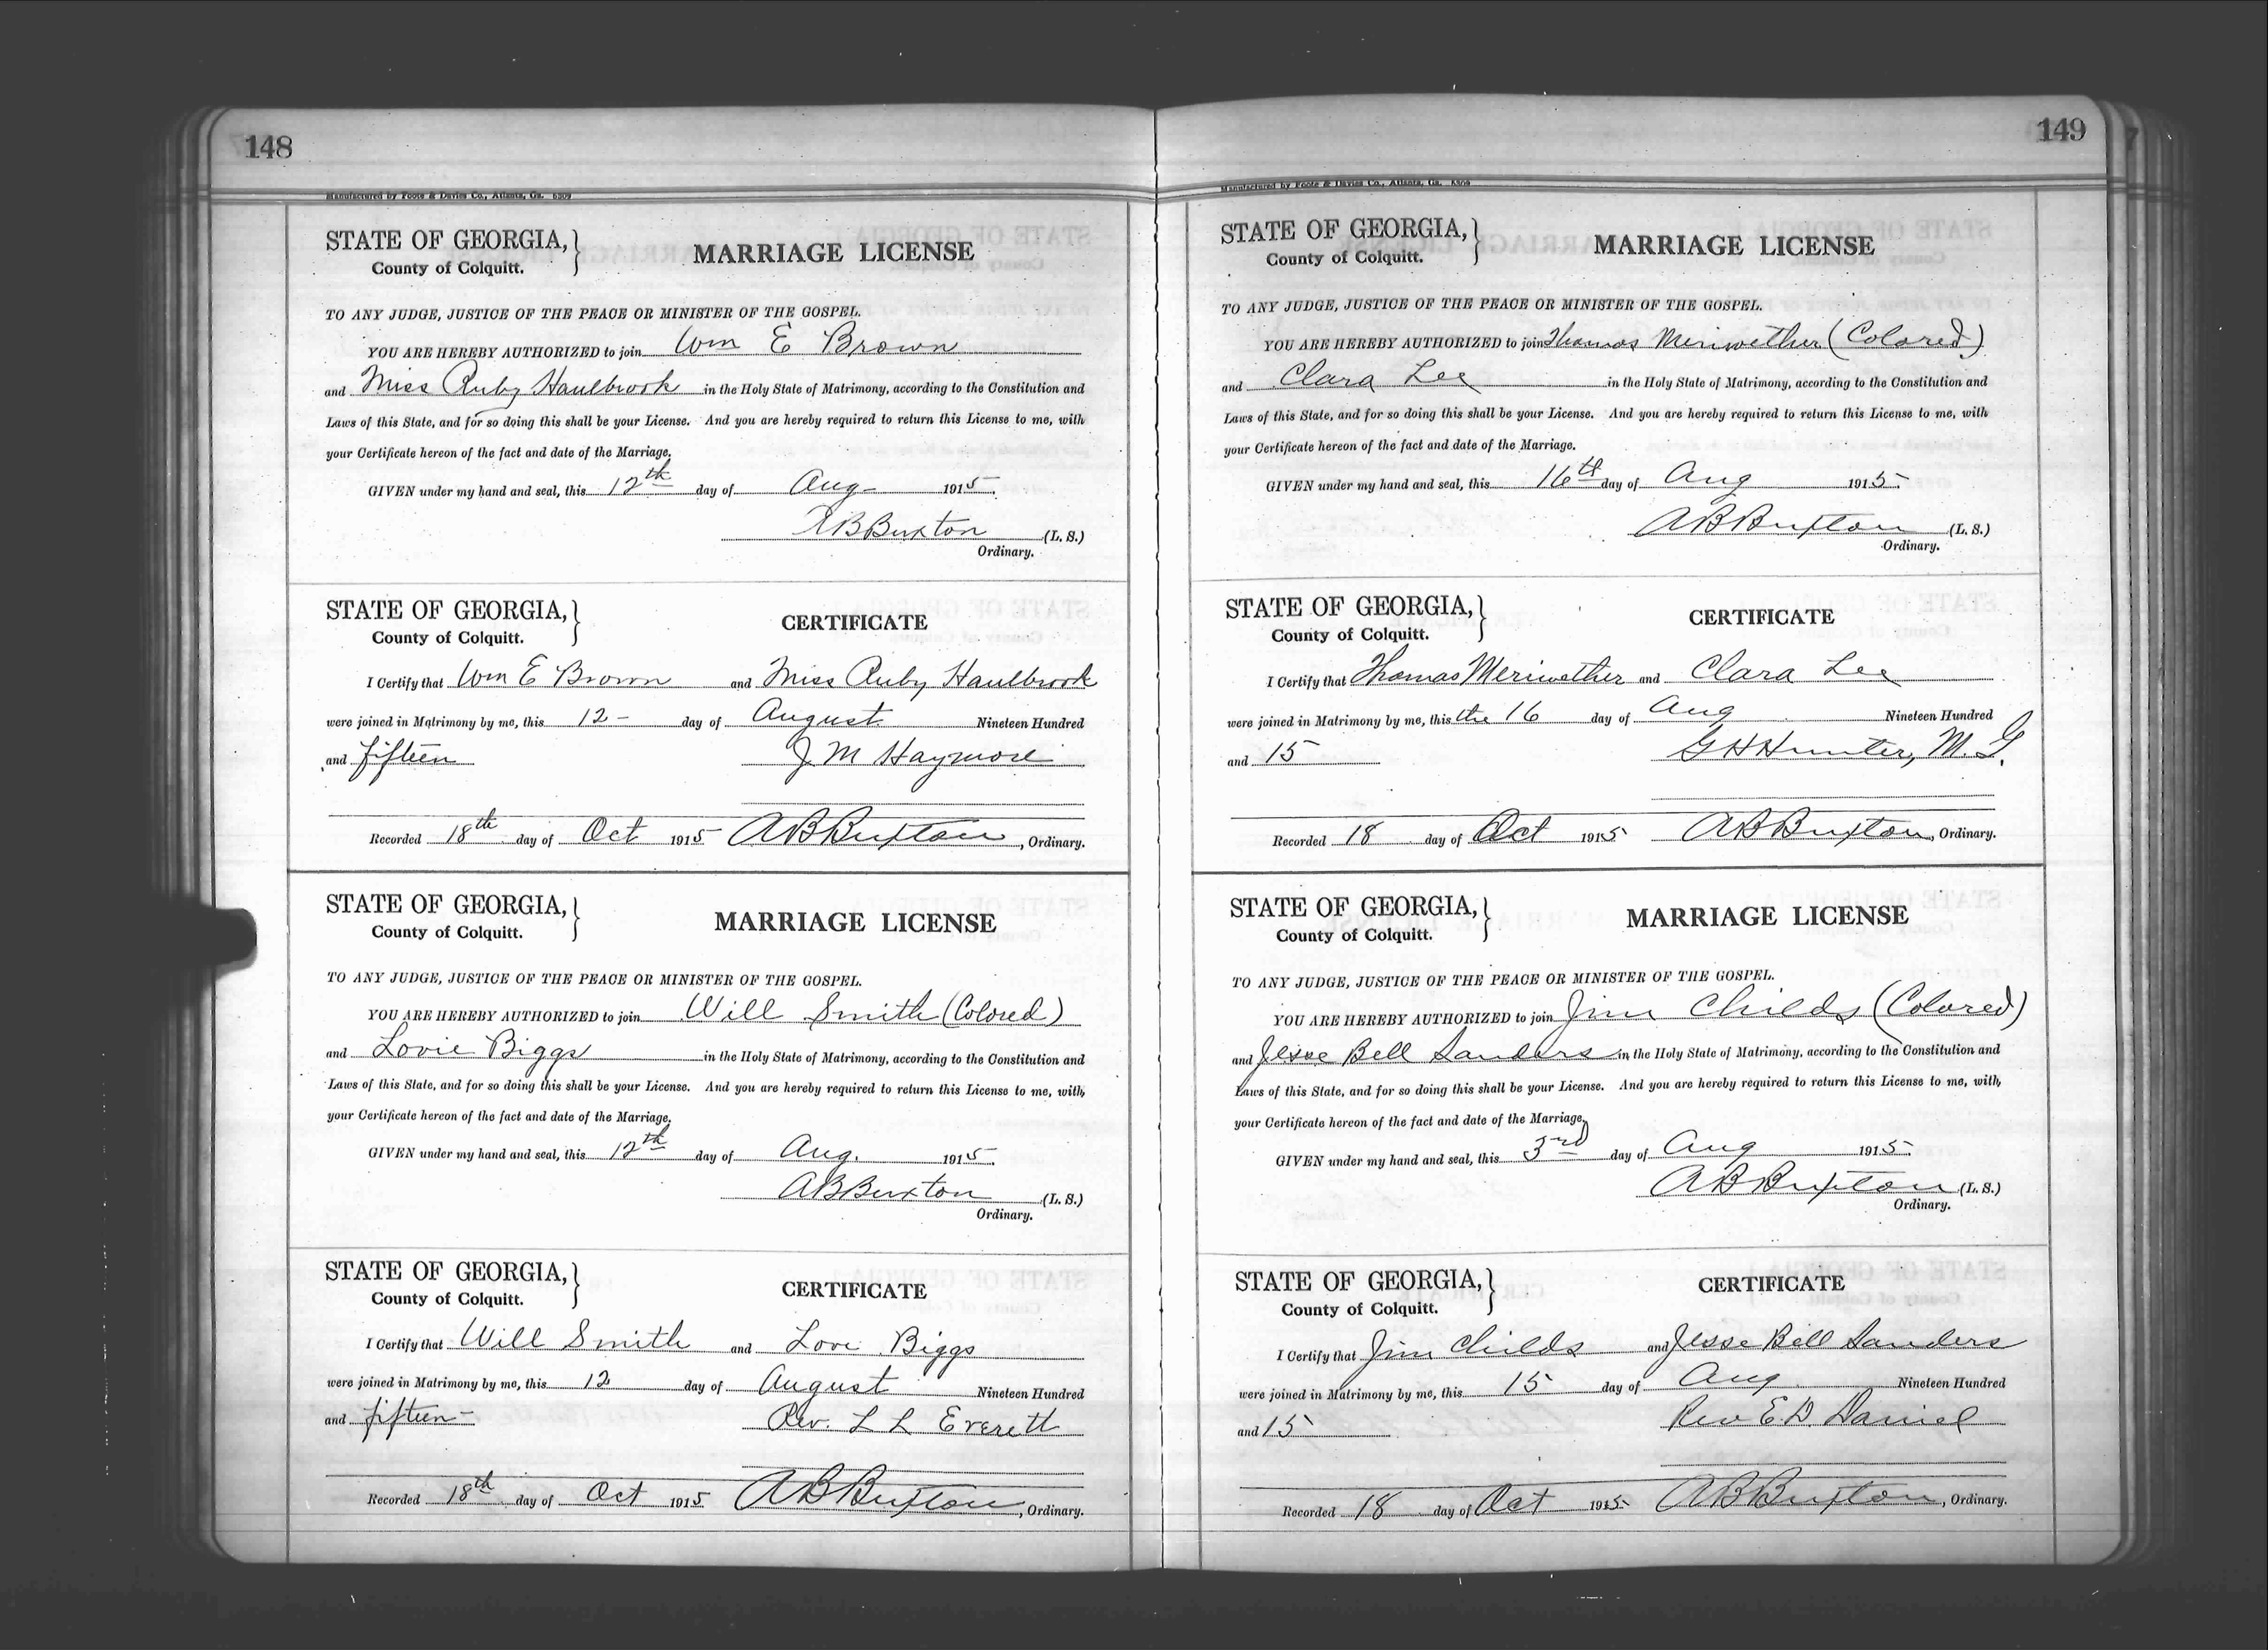 148
Manufactured by Foote & Davies Co., Atlanta, Ga. 6309
STATE OF GEORGIA,
County of Colquitt.
MARRIAGE LICENSE
TO ANY JUDGE, JUSTICE OF THE PEACE OR MINISTER OF THE GOSPEL.
YOU ARE HEREBY AUTHORIZED to join Wm E Brown
and Miss Ruby Haulbrook in the Holy State of Matrimony, according to the Constitution and
Laws of this State, and for so doing this shall be your License. And you are hereby required to return this License to me, with
your Certificate hereon of the fact and date of the Marriage.
GIVEN under my hand and seal, this 12th day of Aug 1915.
A B Buxton (L. S.)
Ordinary.
STATE OF GEORGIA,
County of Colquitt.
CERTIFICATE
I Certify that Wm E Brown and Miss Ruby Haulbrook
were joined in Matrimony by me, this 12 - day of August Nineteen Hundred
and fifteen J M Haymore
Recorded 18th day of Oct 1915 A B Buxton, Ordinary.
STATE OF GEORGIA,
County of Colquitt.
MARRIAGE LICENSE
TO ANY JUDGE, JUSTICE OF THE PEACE OR MINISTER OF THE GOSPEL.
YOU ARE HEREBY AUTHORIZED to join Will Smith (Colored)
and Lovie Biggs in the Holy State of Matrimony, according to the Constitution and
Laws of this State, and for so doing this shall be your License. And you are hereby required to return this License to me, with,
your Certificate hereon of the fact and date of the Marriage.
GIVEN under my hand and seal, this 12th day of Aug. 1915.
A B Buxton (L. S.)
Ordinary.
STATE OF GEORGIA,
County of Colquitt.
CERTIFICATE
I Certify that Will Smith and Lovi Biggs
were joined in Matrimony by me, this 12 day of August Nineteen Hundred
and fifteen - Rev. L L Everett
Recorded 18th day of Oct 1915 A B Buxton, Ordinary.
149
Manufactured by Foote & Davies Co., Atlanta, Ga. 6309
STATE OF GEORGIA,
County of Colquitt.
MARRIAGE LICENSE
TO ANY JUDGE, JUSTICE OF THE PEACE OR MINISTER OF THE GOSPEL.
YOU ARE HEREBY AUTHORIZED to join Thomas Meriwether (Colored)
and Clara Lee in the Holy State of Matrimony, according to the Constitution and
Laws of this State, and for so doing this shall be your License. And you are hereby required to return this License to me, with
your Certificate hereon of the fact and date of the Marriage.
GIVEN under my hand and seal, this 16th day of Aug 1915.
A B Buxton (L. S.)
Ordinary.
STATE OF GEORGIA,
County of Colquitt.
CERTIFICATE
I Certify that Thomas Meriwether and Clara Lee
were joined in Matrimony by me, this the 16 day of Aug Nineteen Hundred
and 15 G H Hunter, M. G.
Recorded 18 day of Oct 1915 A B Buxton, Ordinary.
STATE OF GEORGIA,
County of Colquitt.
MARRIAGE LICENSE
TO ANY JUDGE, JUSTICE OF THE PEACE OR MINISTER OF THE GOSPEL.
YOU ARE HEREBY AUTHORIZED to join Jim Childs (Colored)
and Jesse Bell Sanders in the Holy State of Matrimony, according to the Constitution and
Laws of this State, and for so doing this shall be your License. And you are hereby required to return this License to me, with,
your Certificate hereon of the fact and date of the Marriage,
GIVEN under my hand and seal, this 3rd day of Aug 1915.
A B Buxton (L. S.)
Ordinary.
STATE OF GEORGIA,
County of Colquitt.
CERTIFICATE
I Certify that Jim Childs and Jesse Bell Sanders
were joined in Matrimony by me, this 15 day of Aug. Nineteen Hundred
and 15 Rev E. D. Daniel
Recorded 18 day of Oct 1915 A B Buxton, Ordinary.